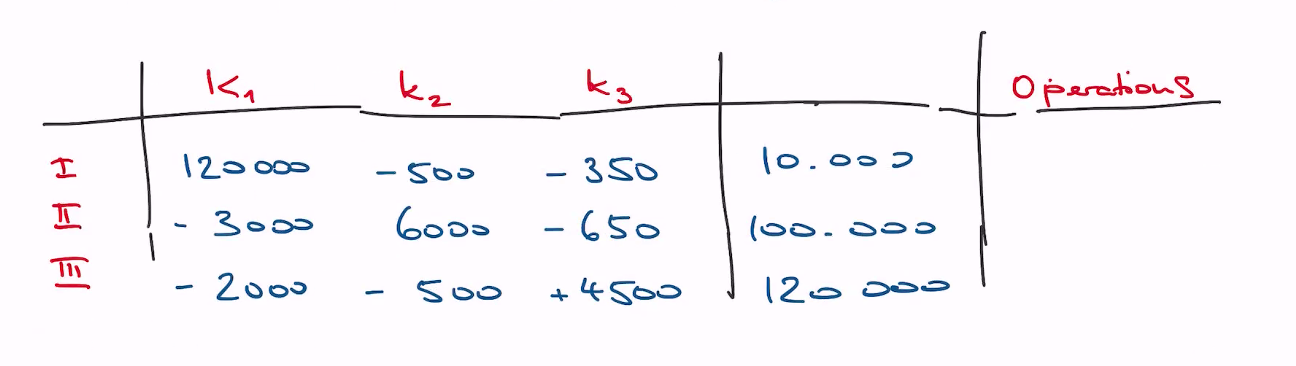 K1 k2 k3 Operations
I 120000 - 500 - 350 10.000
II - 3000 6000 - 650 100.000
III - 2000 - 500 + 4500 120 000